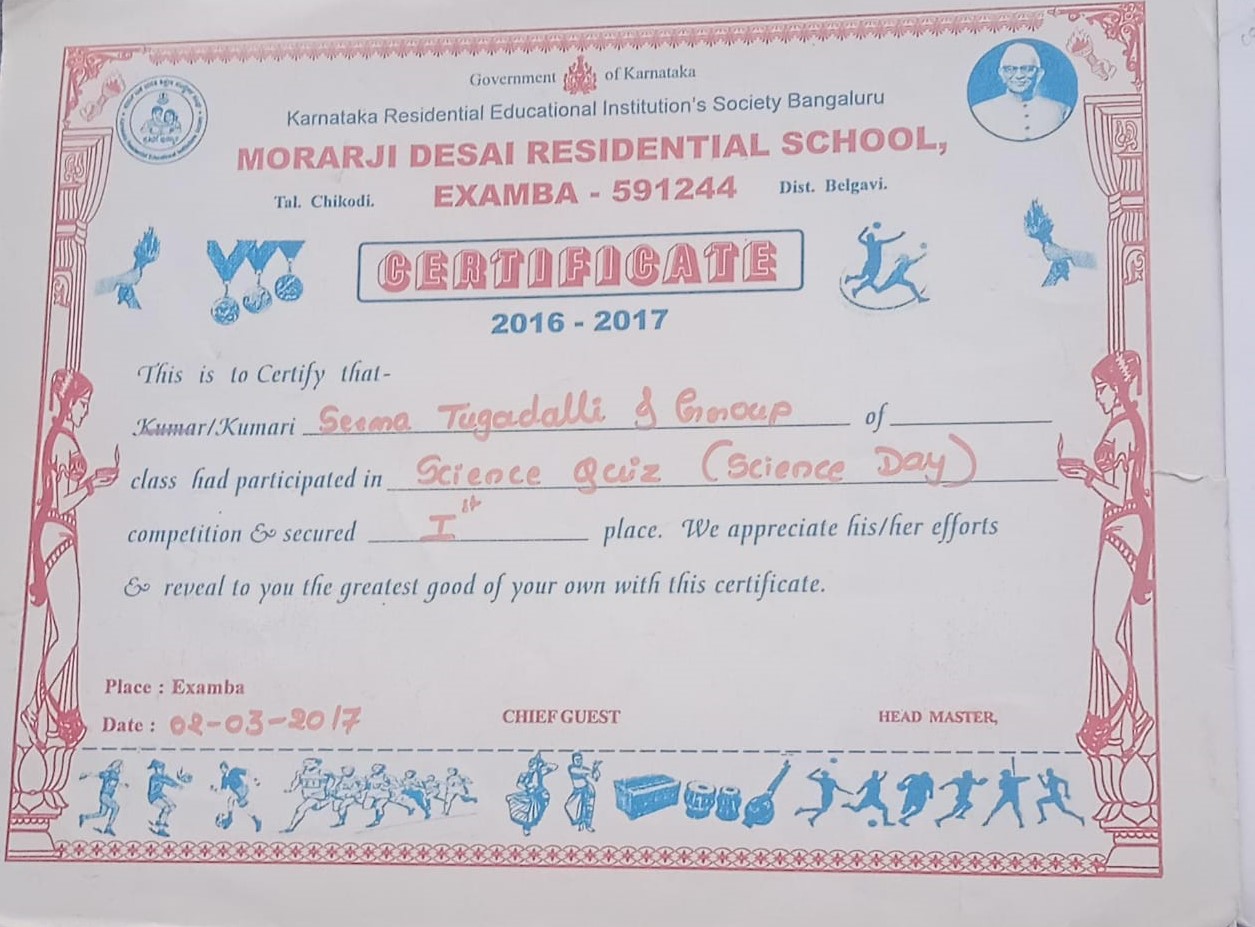 Government of Karnataka
Karnataka Residential Educational Institution's Society Bangaluru
MORARJI DESAI RESIDENTIAL SCHOOL,
Tal. Chikodi. EXAMBA - 591244 Dist. Belgavi.
CERTIFICATE
2016 - 2017
This is to Certify that-
Kumar/Kumari Seema Tugadalli & Group of
class had participated in Science Quiz (Science Day)
competition & secured I st place. We appreciate his/her efforts
& reveal to you the greatest good of your own with this certificate.
Place : Examba
Date : 02-03-2017 CHIEF GUEST HEAD MASTER,